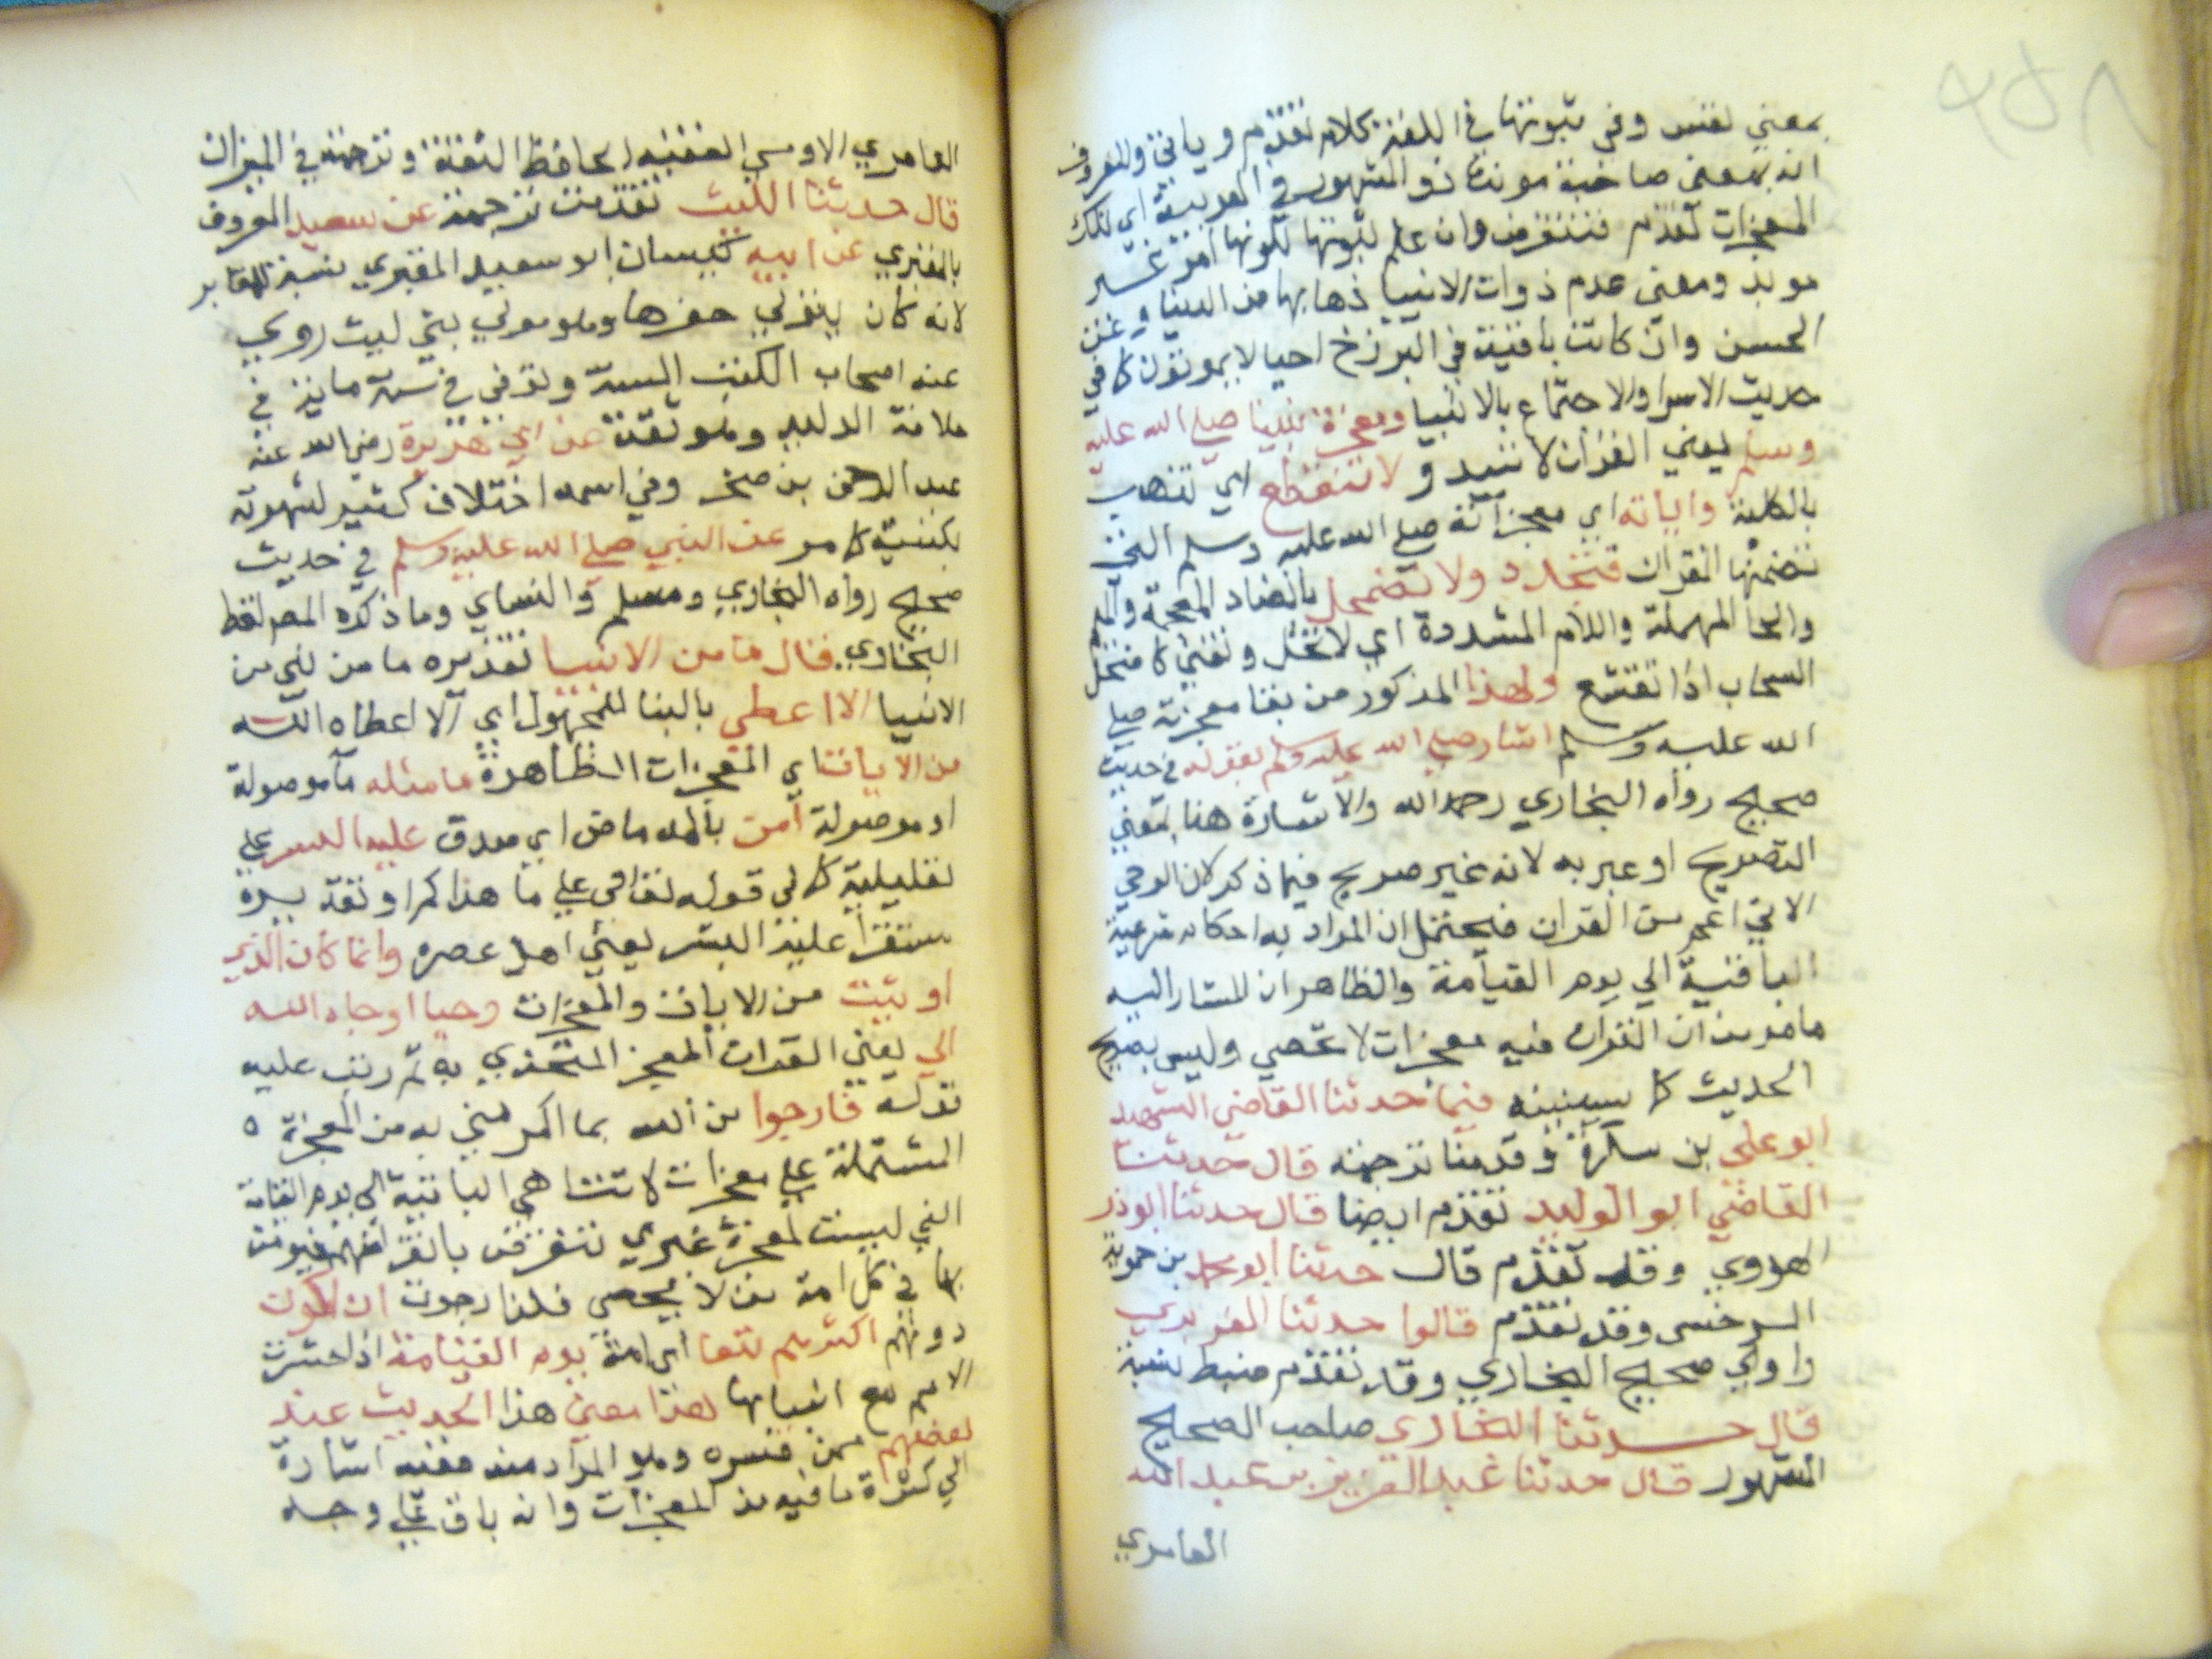 بمعني نفس وفي ثبوتها في اللغة كلام تقدم وياتي والمعروف
انه بمعني صاحبة مونث ذو المشهور في العربية اي تلك
المعجزات تقدم فتنقرض وان علم ثبوتها لكونها امر غير
موبد ومعني عدم ذوات الانبيا ذهابها من الدنيا وعن
الحسن وان كانت باقية في البرزخ احيا لا يموتون كما في
حديث الاسرا والاجتماع بالانبيا ومعجزة نبينا صلي الله عليه
وسلم يعني القران لا تبيد و لا تنقطع اي تذهب
بالكلية واياته اي معجزاته صلي الله عليه وسلم التي
تضمنها القران تتجدد ولا تضمحل بالضاد المعجمة والميم
والحا المهملة واللام المشددة اي لا تنحل وتفني كما ينحل
السحاب اذا تقشع ولهذا المذكور من بقا معجزته صلي
الله عليه وسلم اشار صلي الله عليه وسلم بقوله في حديث
صحيح رواه البخاري رحمه الله والاشارة هنا بمعني
التصريح او عبر به لانه غير صريح فيما ذكر لان الوحي
الاتي اعم من القران فيحتمل ان المراد به احكامه شرعية
الباقية الي يوم القيامة والظاهر ان المشار اليه
ما مر من ان القران فيه معجزات لا تحصي وليس بصريح
الحديث كما سيبينه فيما حدثنا القاضي الشهيد
ابو علي بن سكرة وقدمنا ترجمته قال حدثنا
القاضي ابو الوليد تقدم ايضا قال حدثنا ابو ذر
الهروي وقد تقدم قال حدثنا ابو محمد بن حمويه
السرخسي وقد تقدم قالوا حدثنا الفربري
راوي صحيح البخاري وقد تقدم ضبط نسبة
قال حدثنا البخاري صاحب الصحيح
المشهور قال حدثنا عبد العزيز بن عبد الله
العامري
العامري الاوسي الفقيه الحافظ الثقة وترجمته في الميزان
قال حدثنا الليث تقدمت ترجمته عن سعيد المعروف
بالمقبري عن ابيه كيسان ابو سعيد المقبري نسبة للمقابر
لانه كان يتولي حفرها وهو مولي بني ليث روي
عنه اصحاب الكتب الستة وتوفي في سنة ماية في
خلافة الوليد وهو ثقة عن ابي هريرة رضي الله عنه
عبد الرحمن بن صخر وفي اسمه اختلاف كثير لشهرته
بكنيته كما مر عن النبي صلي الله عليه وسلم في حديث
صحيح رواه البخاري ومسلم والنساي وما ذكره المصر لفظ
البخاري قال ما من الانبيا تقديره ما من نبي من
الانبيا الا اعطي بالبنا للمجهول اي الا اعطاه الله
من الايات اي المعجزات الظاهرة ما مثله ما موصولة
او موصولة امن بالمد ماض اي صدق عليه البشر علي
تعليلية كما في قوله
سنقرا عليه البشر يعني اهل عصره وانما كان الذي
اوتيت من الايات والمعجزات وحيا اوحاه الله
الي يعني القران المعجز المتحدي به ثم رتب عليه
قوله فارجوا من الله بما اكرمني به من المعجزة
المشتملة علي معجزات لا تتناهي الباقية الي يوم القيامة
التي ليست لمعجزة غيري تنقرض بانقراضهم فيومن
بها في كل امة من لا يحصي فلذا رجوت ان اكون
دونهم اكثرهم تبعا اي امة يوم القيامة اذا حشرت
الامم مع انبيايها هذا معني هذا الحديث عند
بعضهم ممن فسره وهو المراد منه ففيه اشارة
الي كثرة ما فيه من المعجزات وانه باق علي وجه